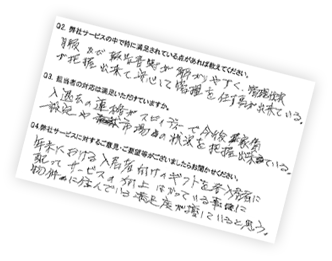 Q2. 弊社サービスの中で特に満足されている点があれば教えてください。
月報など 報告書類が解りやすく、管理状況
が把握出来て安心して管理を任せる事が出来ている。
Q3. 担当者の対応は満足いただけていますか。
入退去の連絡がスピーディーで今後
市場の状況を把握出来ている。
Q4.弊社サービスに対するご意見・ご要望等がございましたらお聞かせください。
年末における入居者向けのギフトを各入居者に
配って サービスの向上 はかっている事が
物件に住んでいる満足度が増していると思う。